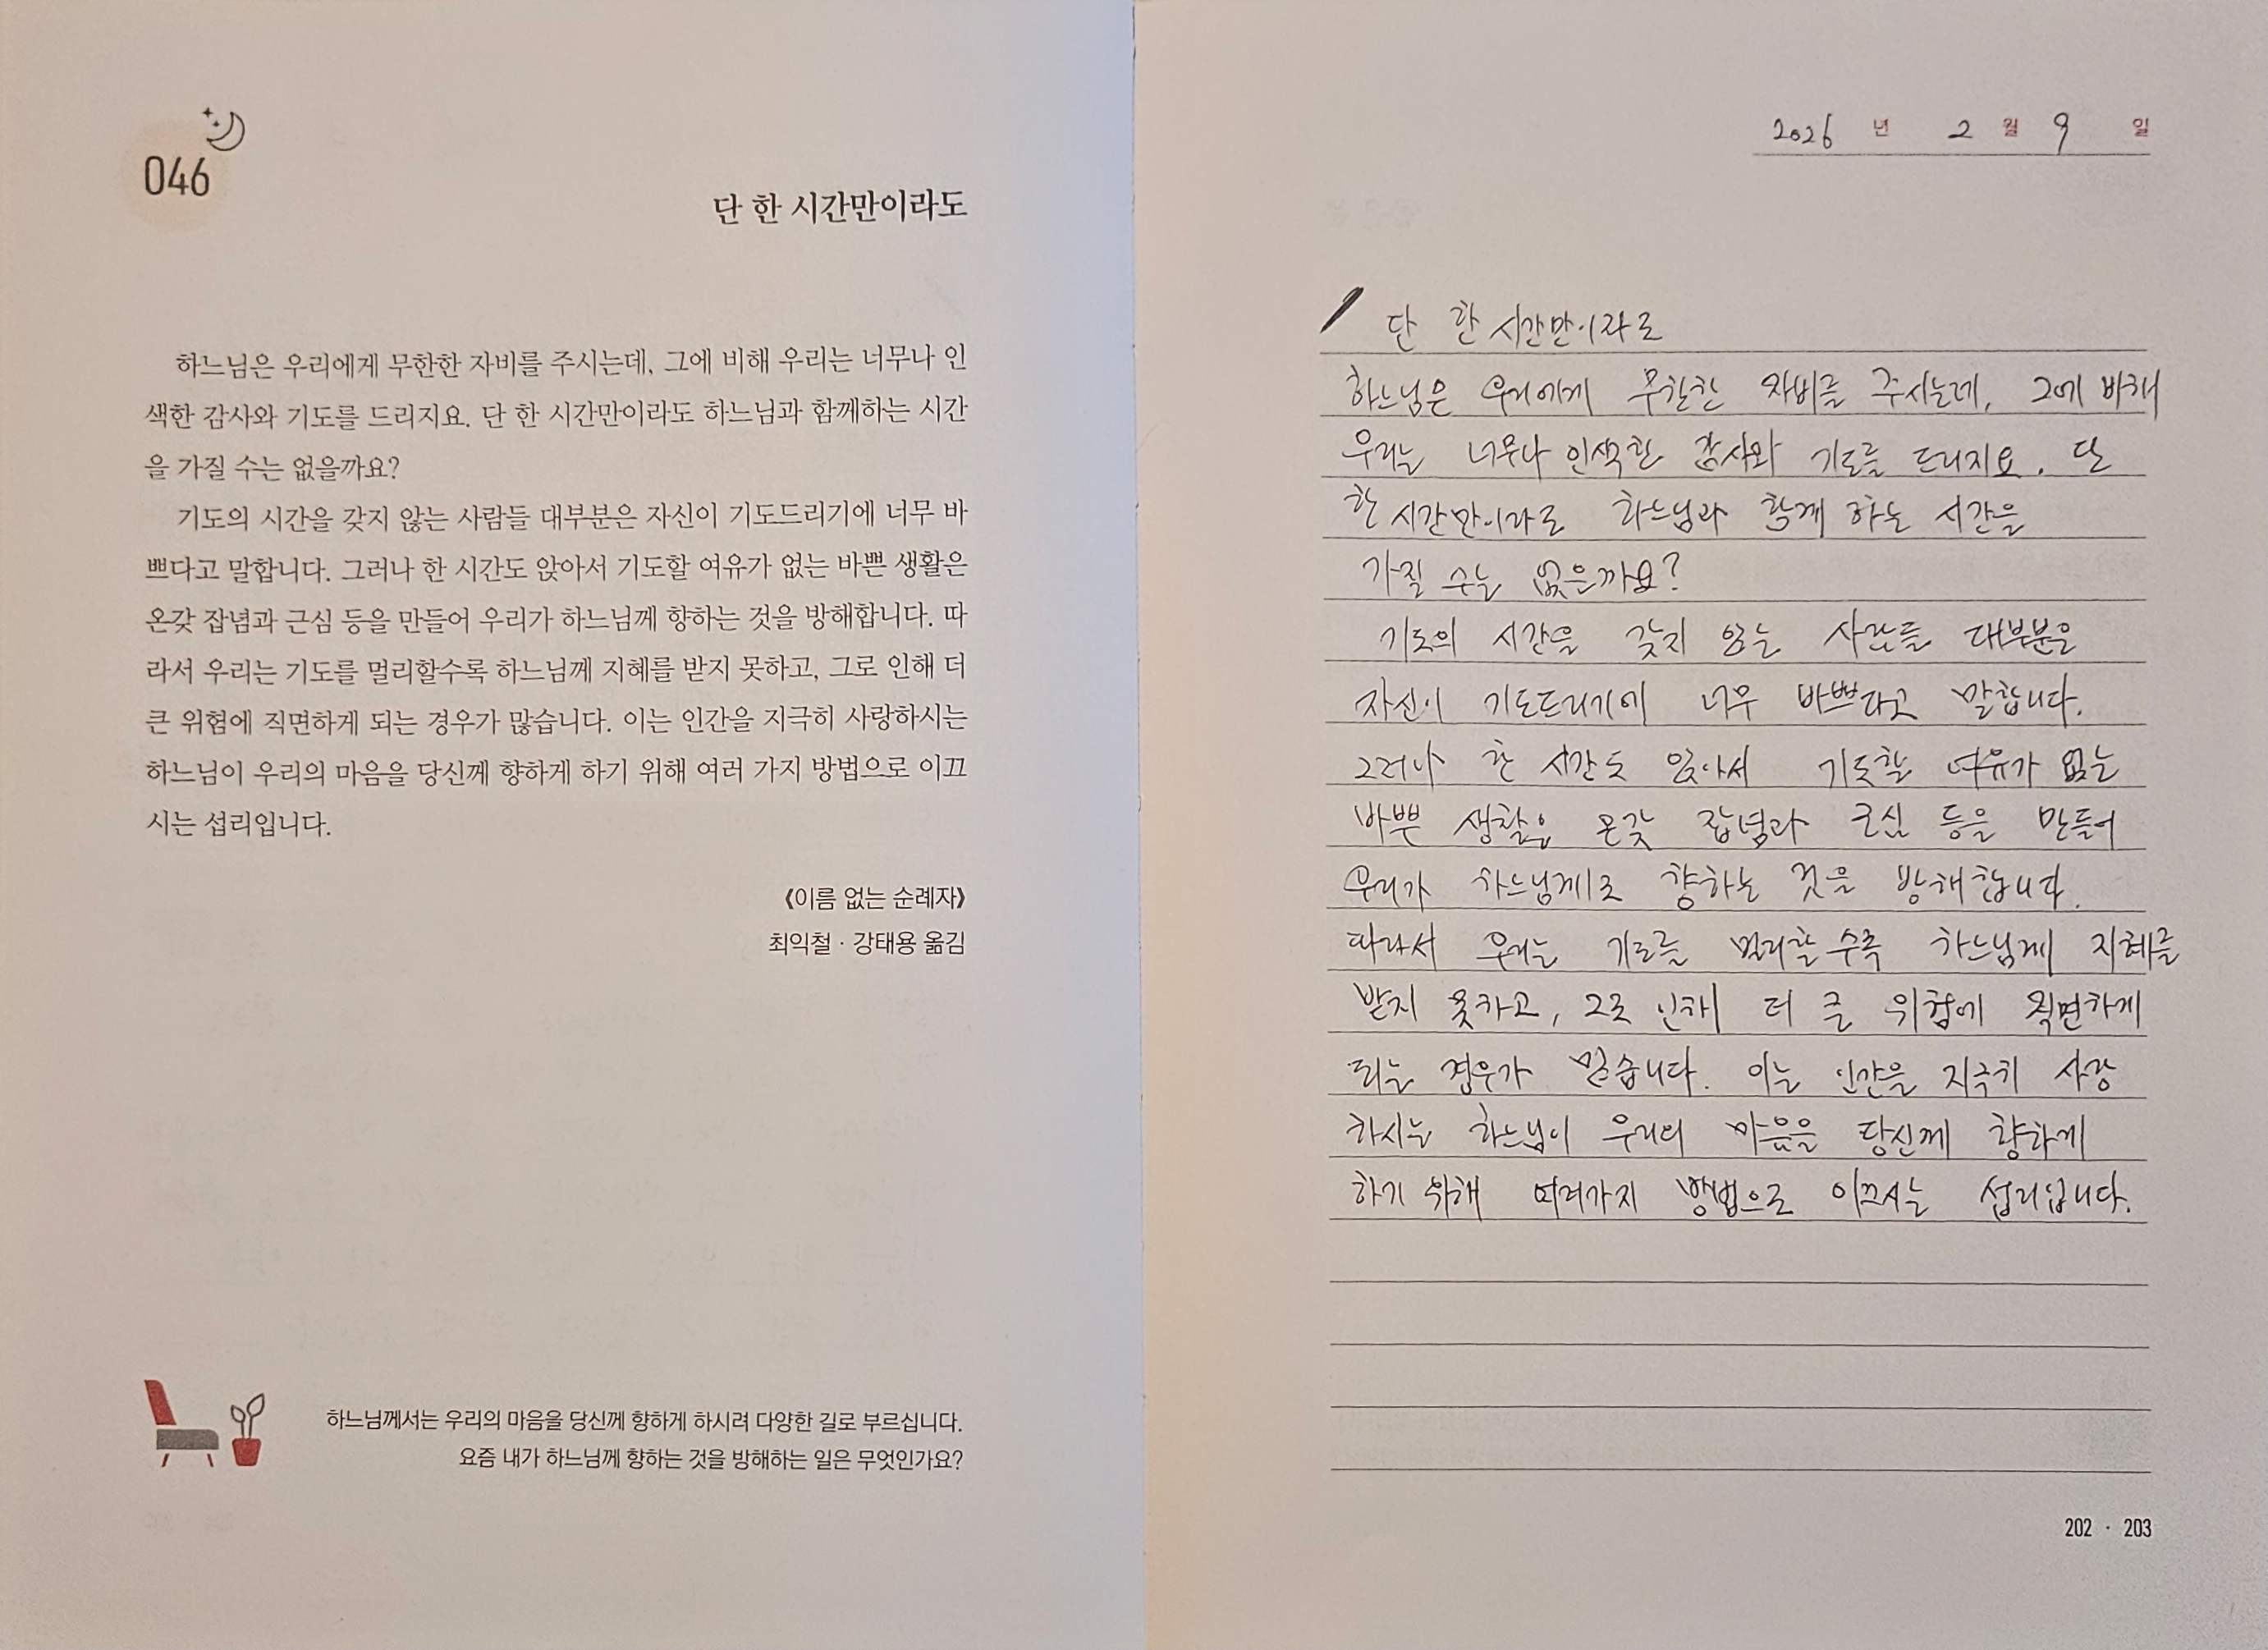 046
단 한 시간만이라도
하느님은 우리에게 무한한 자비를 주시는데, 그에 비해 우리는 너무나 인
색한 감사와 기도를 드리지요. 단 한 시간만이라도 하느님과 함께하는 시간
을 가질 수는 없을까요?
기도의 시간을 갖지 않는 사람들 대부분은 자신이 기도드리기에 너무 바
쁘다고 말합니다. 그러나 한 시간도 앉아서 기도할 여유가 없는 바쁜 생활은
온갖 잡념과 근심 등을 만들어 우리가 하느님께 향하는 것을 방해합니다. 따
라서 우리는 기도를 멀리할수록 하느님께 지혜를 받지 못하고, 그로 인해 더
큰 위험에 직면하게 되는 경우가 많습니다. 이는 인간을 지극히 사랑하시는
하느님이 우리의 마음을 당신께 향하게 하기 위해 여러 가지 방법으로 이끄
시는 섭리입니다.
《이름 없는 순례자》
최익철 · 강태용 옮김
하느님께서는 우리의 마음을 당신께 향하게 하시려 다양한 길로 부르십니다.
요즘 내가 하느님께 향하는 것을 방해하는 일은 무엇인가요?
2026 년 2 월 9 일
단 한 시간만이라도
하느님은 우리에게 무한한 자비를 주시는데, 그에 비해
우리는 너무나 인색한 감사와 기도를 드리지요. 단
한 시간만이라도 하느님과 함께 하는 시간을
가질 수는 없을까요?
기도의 시간을 갖지 않는 사람들 대부분은
자신이 기도드리기에 너무 바쁘다고 말합니다.
그러나 한 시간도 앉아서 기도할 여유가 없는
바쁜 생활은 온갖 잡념과 근심 등을 만들어
우리가 하느님께로 향하는 것을 방해합니다.
따라서 우리는 기도를 멀리할 수록 하느님께 지혜를
받지 못하고, 그로 인해 더 큰 위험에 직면하게
되는 경우가 많습니다. 이는 인간을 지극히 사랑
하시는 하느님이 우리의 마음을 당신께 향하게
하기 위해 여러가지 방법으로 이끄시는 섭리입니다.
202 · 203